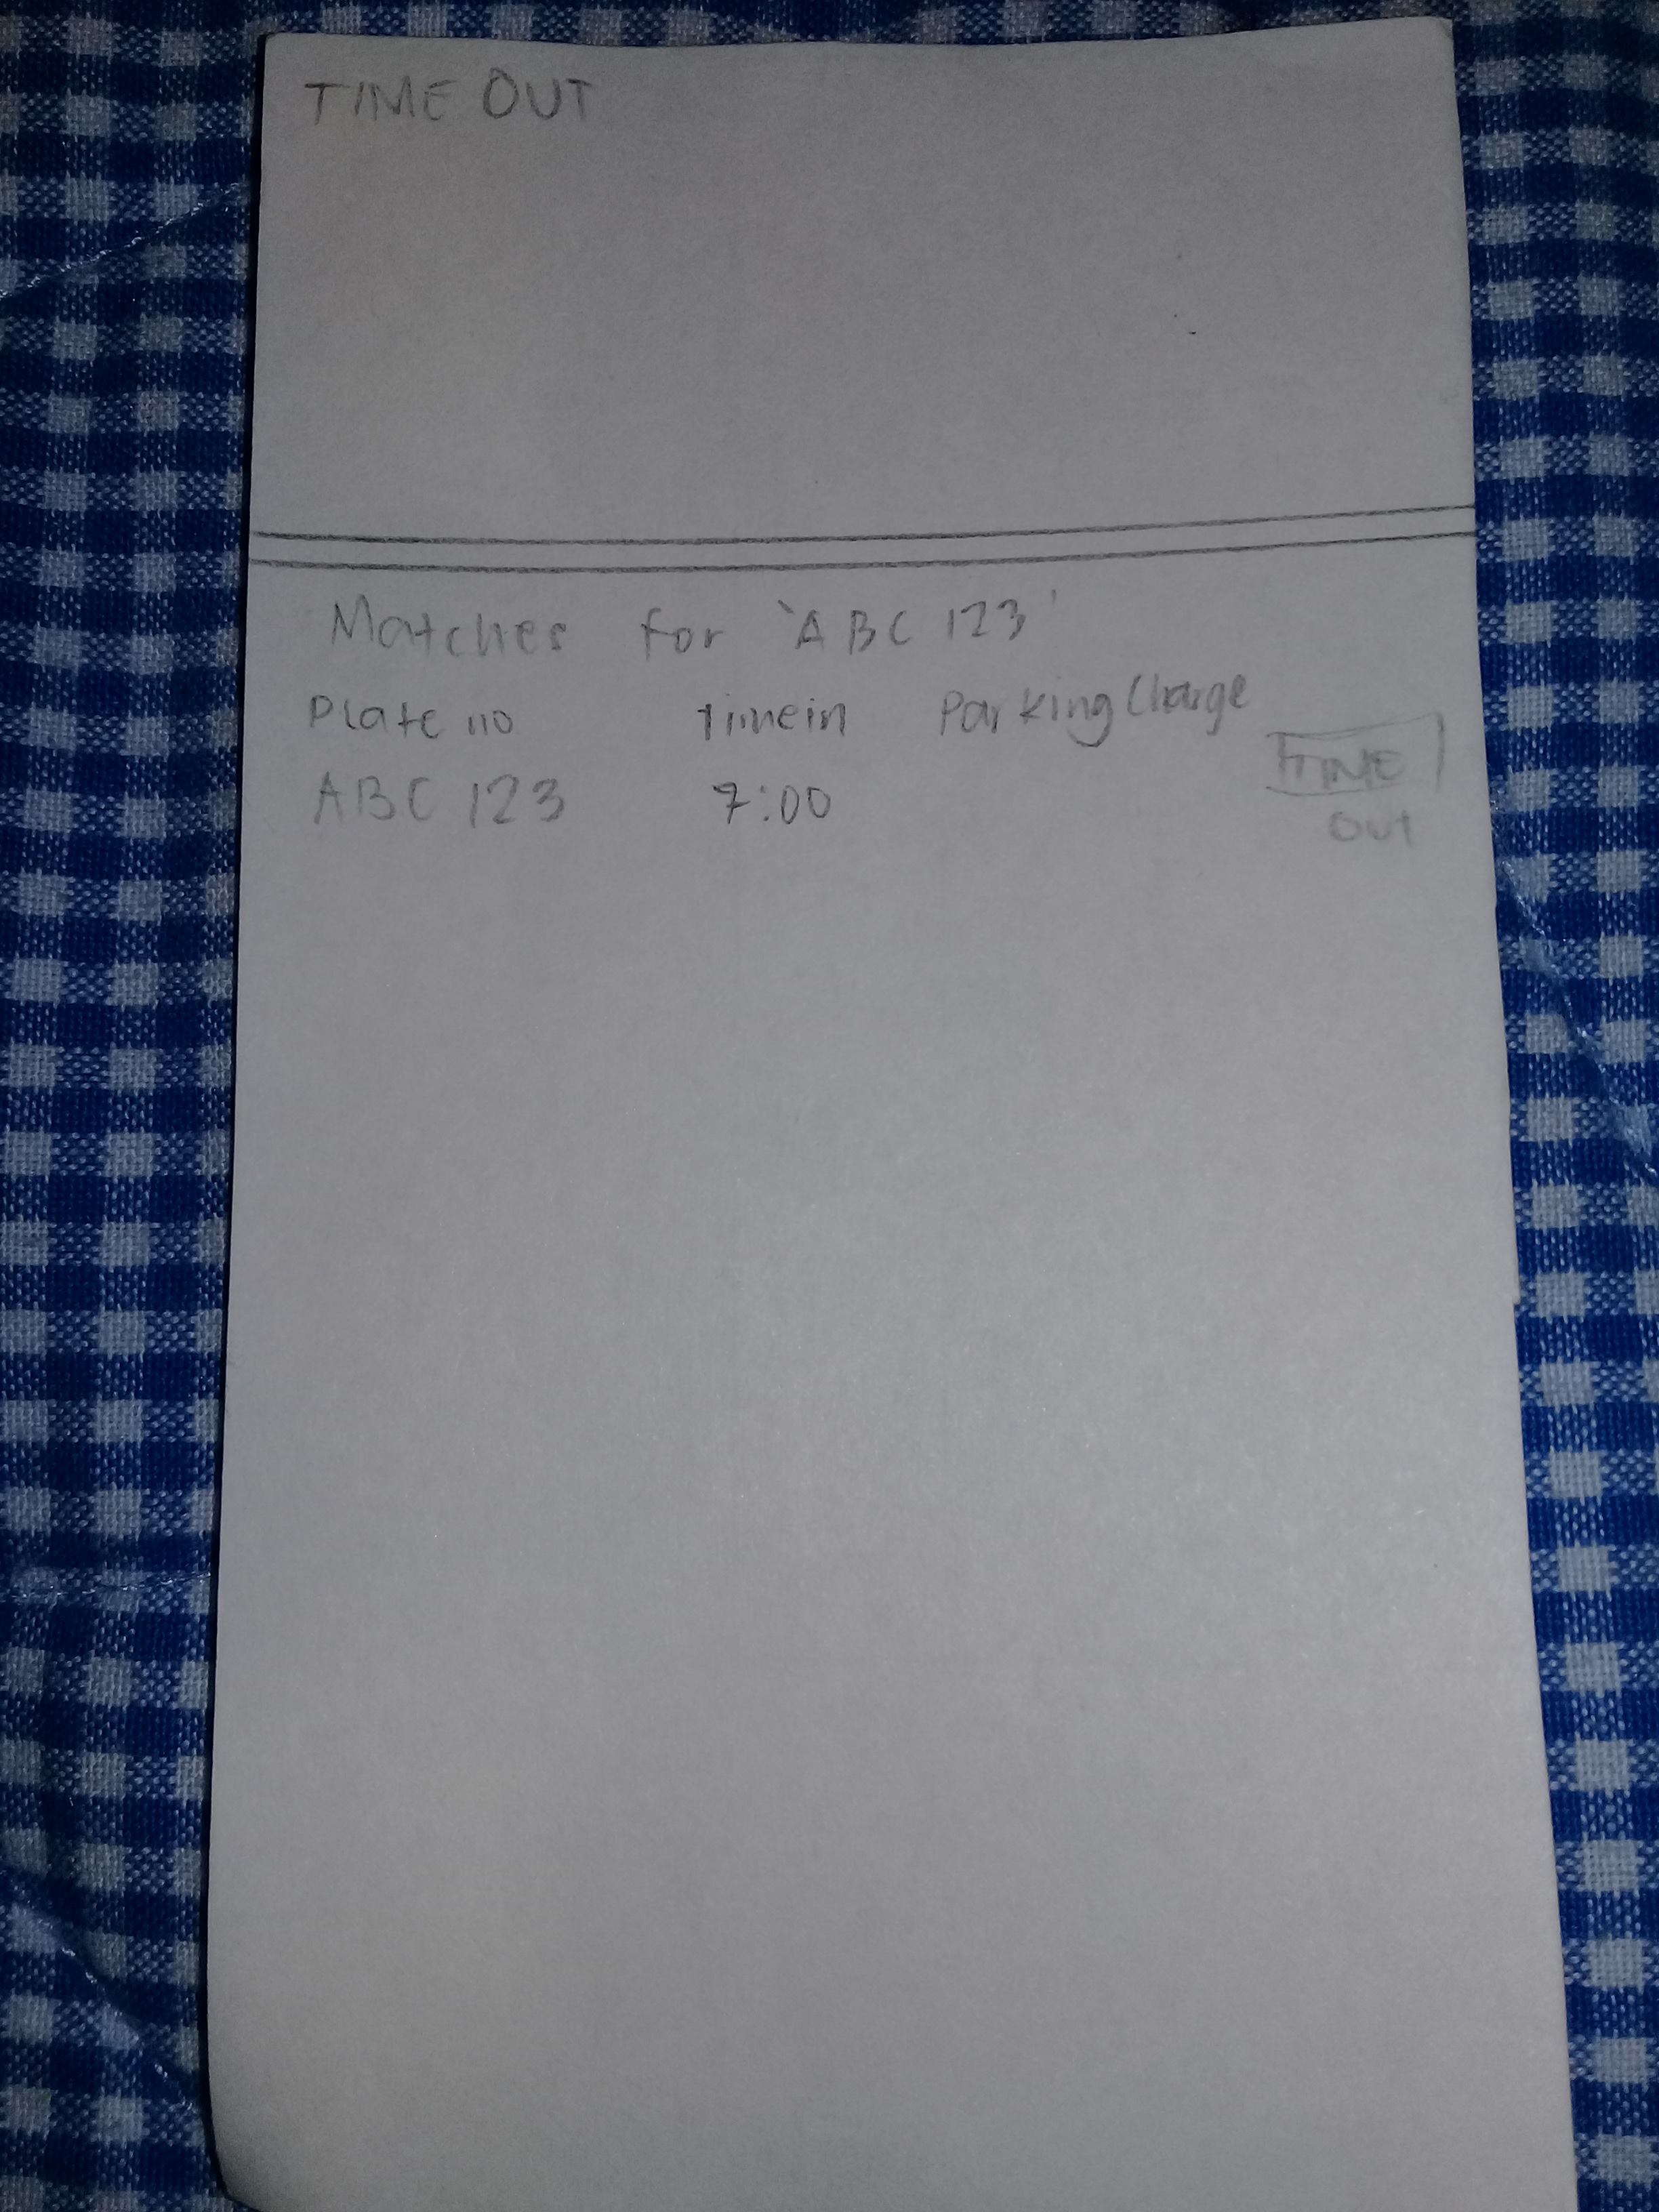 TIME OUT
Matches for 'ABC 123'
Plate no Timein Parking Charge
ABC 123 7:00 TIME
OUT